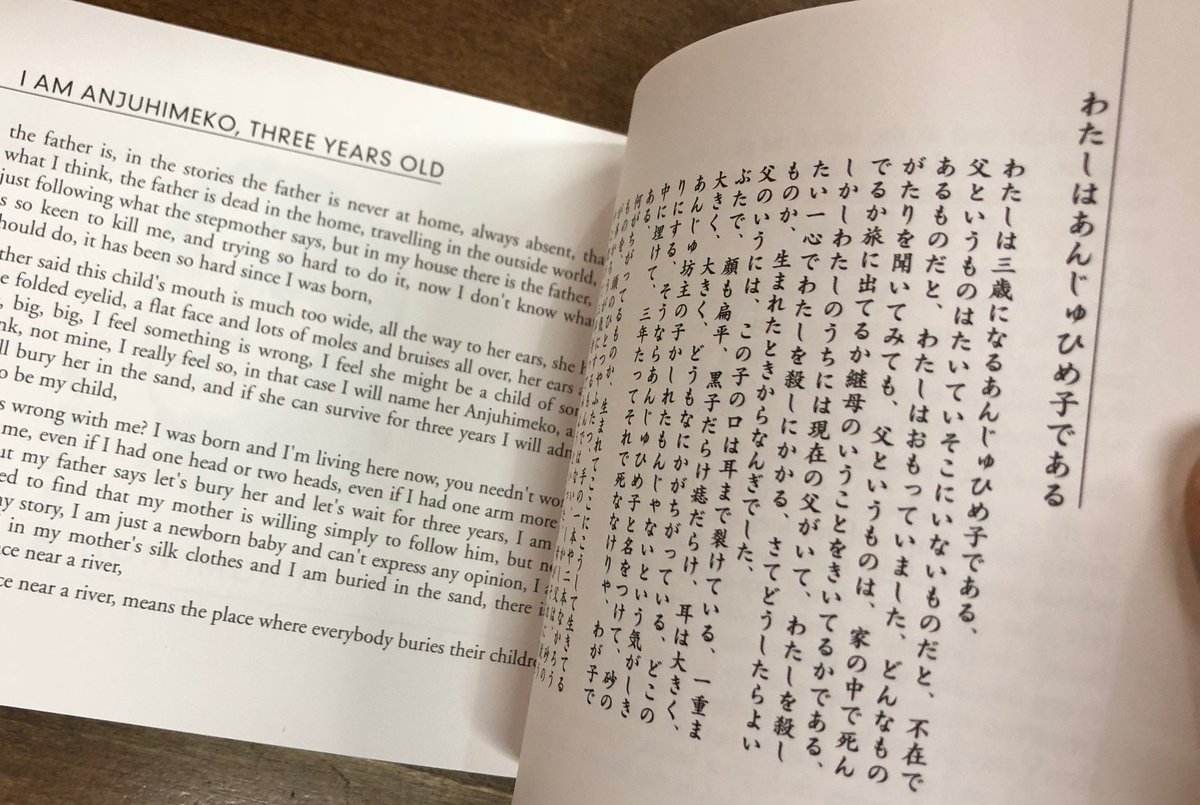 I AM ANJUHIMEKO, THREE YEARS OLD
the father is, in the stories the father is never at home, always absent,
what I think, the father is dead in the home, travelling in the outside world,
just following what the stepmother says, but in my house there is the father,
so keen to kill me, and trying so hard to do it, now I don't know
do, it has been so hard since I was born,
said this child's mouth is much too wide, all the way to her ears, she
folded eyelid, a flat face and lots of moles and bruises all over, her ears
big, big, I feel something is wrong, I feel she might be a child of
not mine, I really feel so, in that case I will name her Anjuhimeko,
bury her in the sand, and if she can survive for three years I will
be my child,
wrong with me? I was born and I'm living here now, you needn't
me, even if I had one head or two heads, even if I had one arm more
my father says let's bury her and let's wait for three years, I am
to find that my mother is willing simply to follow him, but
story, I am just a newborn baby and can't express any opinion, I
in my mother's silk clothes and I am buried in the sand, there
near a river,
near a river, means the place where everybody buries their
わたしはあんじゅひめ子である
わたしは三歳になるあんじゅひめ子である、
父というものはたいていそこにいないものだと、不在で
あるものだと、わたしはおもっていました、どんなもの
がたりを聞いてみても、父というものは、家の中で死ん
でるか旅に出てるか継母のいうことをきいてるかである、
しかしわたしのうちには現在の父がいて、わたしを殺し
たい一心でわたしを殺しにかかる、さてどうしたらよい
ものか、生まれたときからなんぎでした、
父のいうには、この子の口は耳まで裂けている、一重ま
ぶたで、顔も扁平、黒子だらけ痣だらけ、耳は大きく、
大きく、大きく、どうもなにかがちがっている、どこの
あんじゅ坊主の子かしれたもんじゃないという気がしき
りにする、そうならあんじゅひめ子と名をつけて、砂の
中に埋けて、三年たってそれで死ななけりゃ、わが子で
ある
何がちがってるものか、生まれてここにこうして生きてる